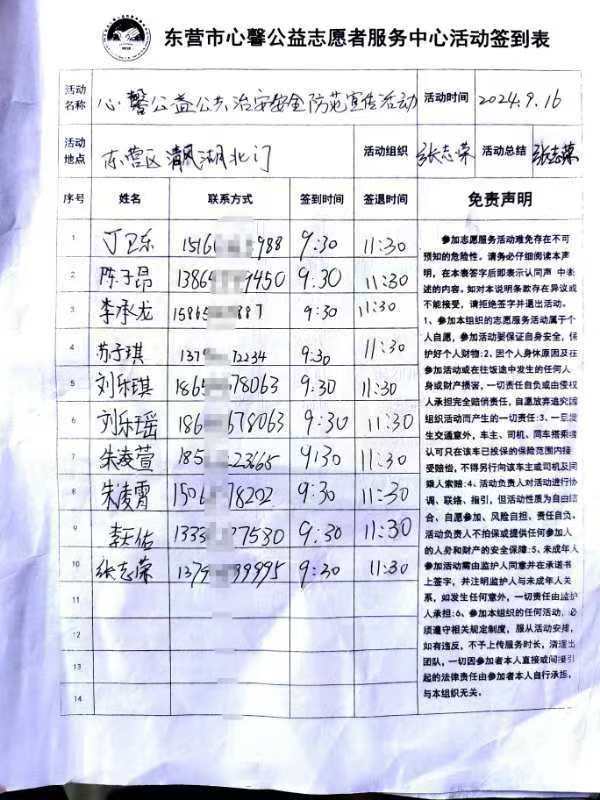 东营市心馨公益志愿者服务中心活动签到表
活动名称 心馨公益公共治安安全防范宣传活动 活动时间 2024.9.16
活动地点 东营区清风湖北门 活动组织 张志荣 活动总结 张志荣
序号 姓名 联系方式 签到时间 签退时间 免责声明
1 丁卫东 1516 988 9:30 11:30
2 陈子昂 1386 9450 9:30 11:30
3 李承龙 1586 887 9:30 11:30
4 苏子琪 137 72234 9:30 11:30
5 刘乐琪 1865 78063 9:30 11:30
6 刘乐瑶 186 578063 9:30 11:30
7 朱凌萱 185 23665 9:30 11:30
8 朱凌霄 1506 78202 9:30 11:30
9 李佑 1333 27580 9:30 11:30
10 张志荣 1379 99995 9:30 11:30
11
12
13
14
参加志愿服务活动难免存在不可
预知的危险性。请务必仔细阅读本声
明，在本表签字后即表示认同声 中表
述的内容。如对本说明条款存在异议或
不能接受，请拒绝签字并退出活动。
1、参加本组织的志愿服务活动属于个
人自愿，参加活动要保证自身安全，保
护好个人财物;2、因个人身休原因及在
参加活动或在往饭途中发生的任何人
身或财产损害，一切责任自负或由侵权
人承担完全赔偿责任，自愿放弃追究因
组织活动而产生的一切责任:3、一旦发
生交通意外，车主、司机、同车搭乘者
认可只在该车已投保的保险范围内接
受赔偿，不得另行向该车主或司机及同
乘人索赔:4、活动负责人对活动进行协
调、联络、指引，但活动性质为自由结
合、自愿参加、风险自担、责任自负。
活动负责人不拍保或提供任何参加人
的人身和财产的安全保障:5、未成年人
参加活动需由监护人同意并在承诺书
上签字，并注明监护人与未成年人关
系，如发生任何意外，一切责任由监护
人承担:6、参加本组织的任何活动，必
须遵守相关规定制度，服从活动安排，
如有违反，不予上传服务时长，清理出
团队，一切因参加者本人直接或间接引
起的法律责任由参加者本人自行承担，
与本组织无关。